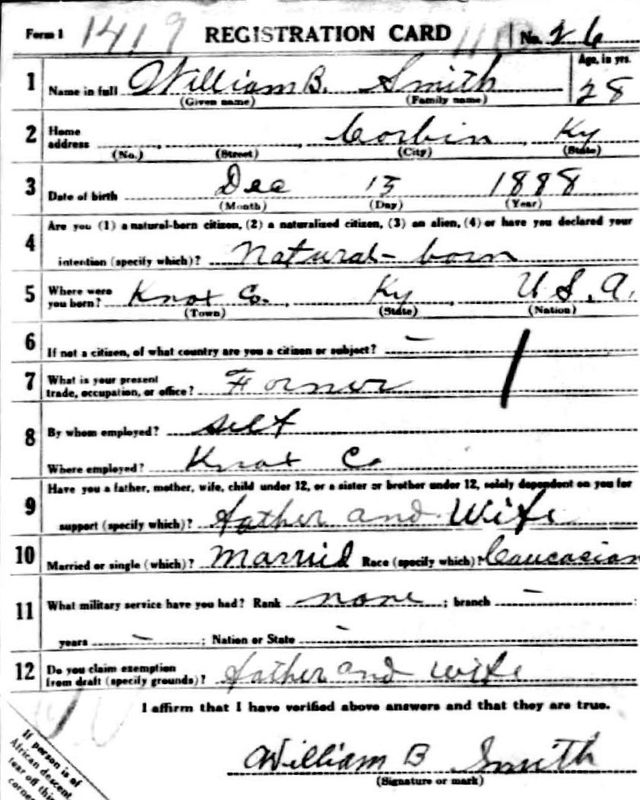 Form 1 1419 REGISTRATION CARD No. 26
1 Name in full William B. Smith Age, in yrs. 28
(Given name) (Family name)
2 Home address Corbin Ky
(No.) (Street) (City) (State)
3 Date of birth Dec 13 1888
(Month) (Day) (Year)
4 Are you (1) a natural-born citizen, (2) a naturalized citizen, (3) an alien, (4) or have you declared your
intention (specify which)? Natural-born
5 Where were you born? Knox Co. Ky U.S.A.
(Town) (State) (Nation)
6 If not a citizen, of what country are you a citizen or subject? -
7 What is your present trade, occupation, or office? Farmer
8 By whom employed? self
Where employed? Knox Co
9 Have you a father, mother, wife, child under 12, or a sister or brother under 12, solely dependent on you for
support (specify which)? father and Wife
10 Married or single (which)? Married Race (specify which)? Caucasian
11 What military service have you had? Rank none ; branch - ;
years - ; Nation or State -
12 Do you claim exemption from draft (specify grounds)? father and wife
I affirm that I have verified above answers and that they are true.
William B Smith
(Signature or mark)
If person is of
African descent,
tear off this
corner